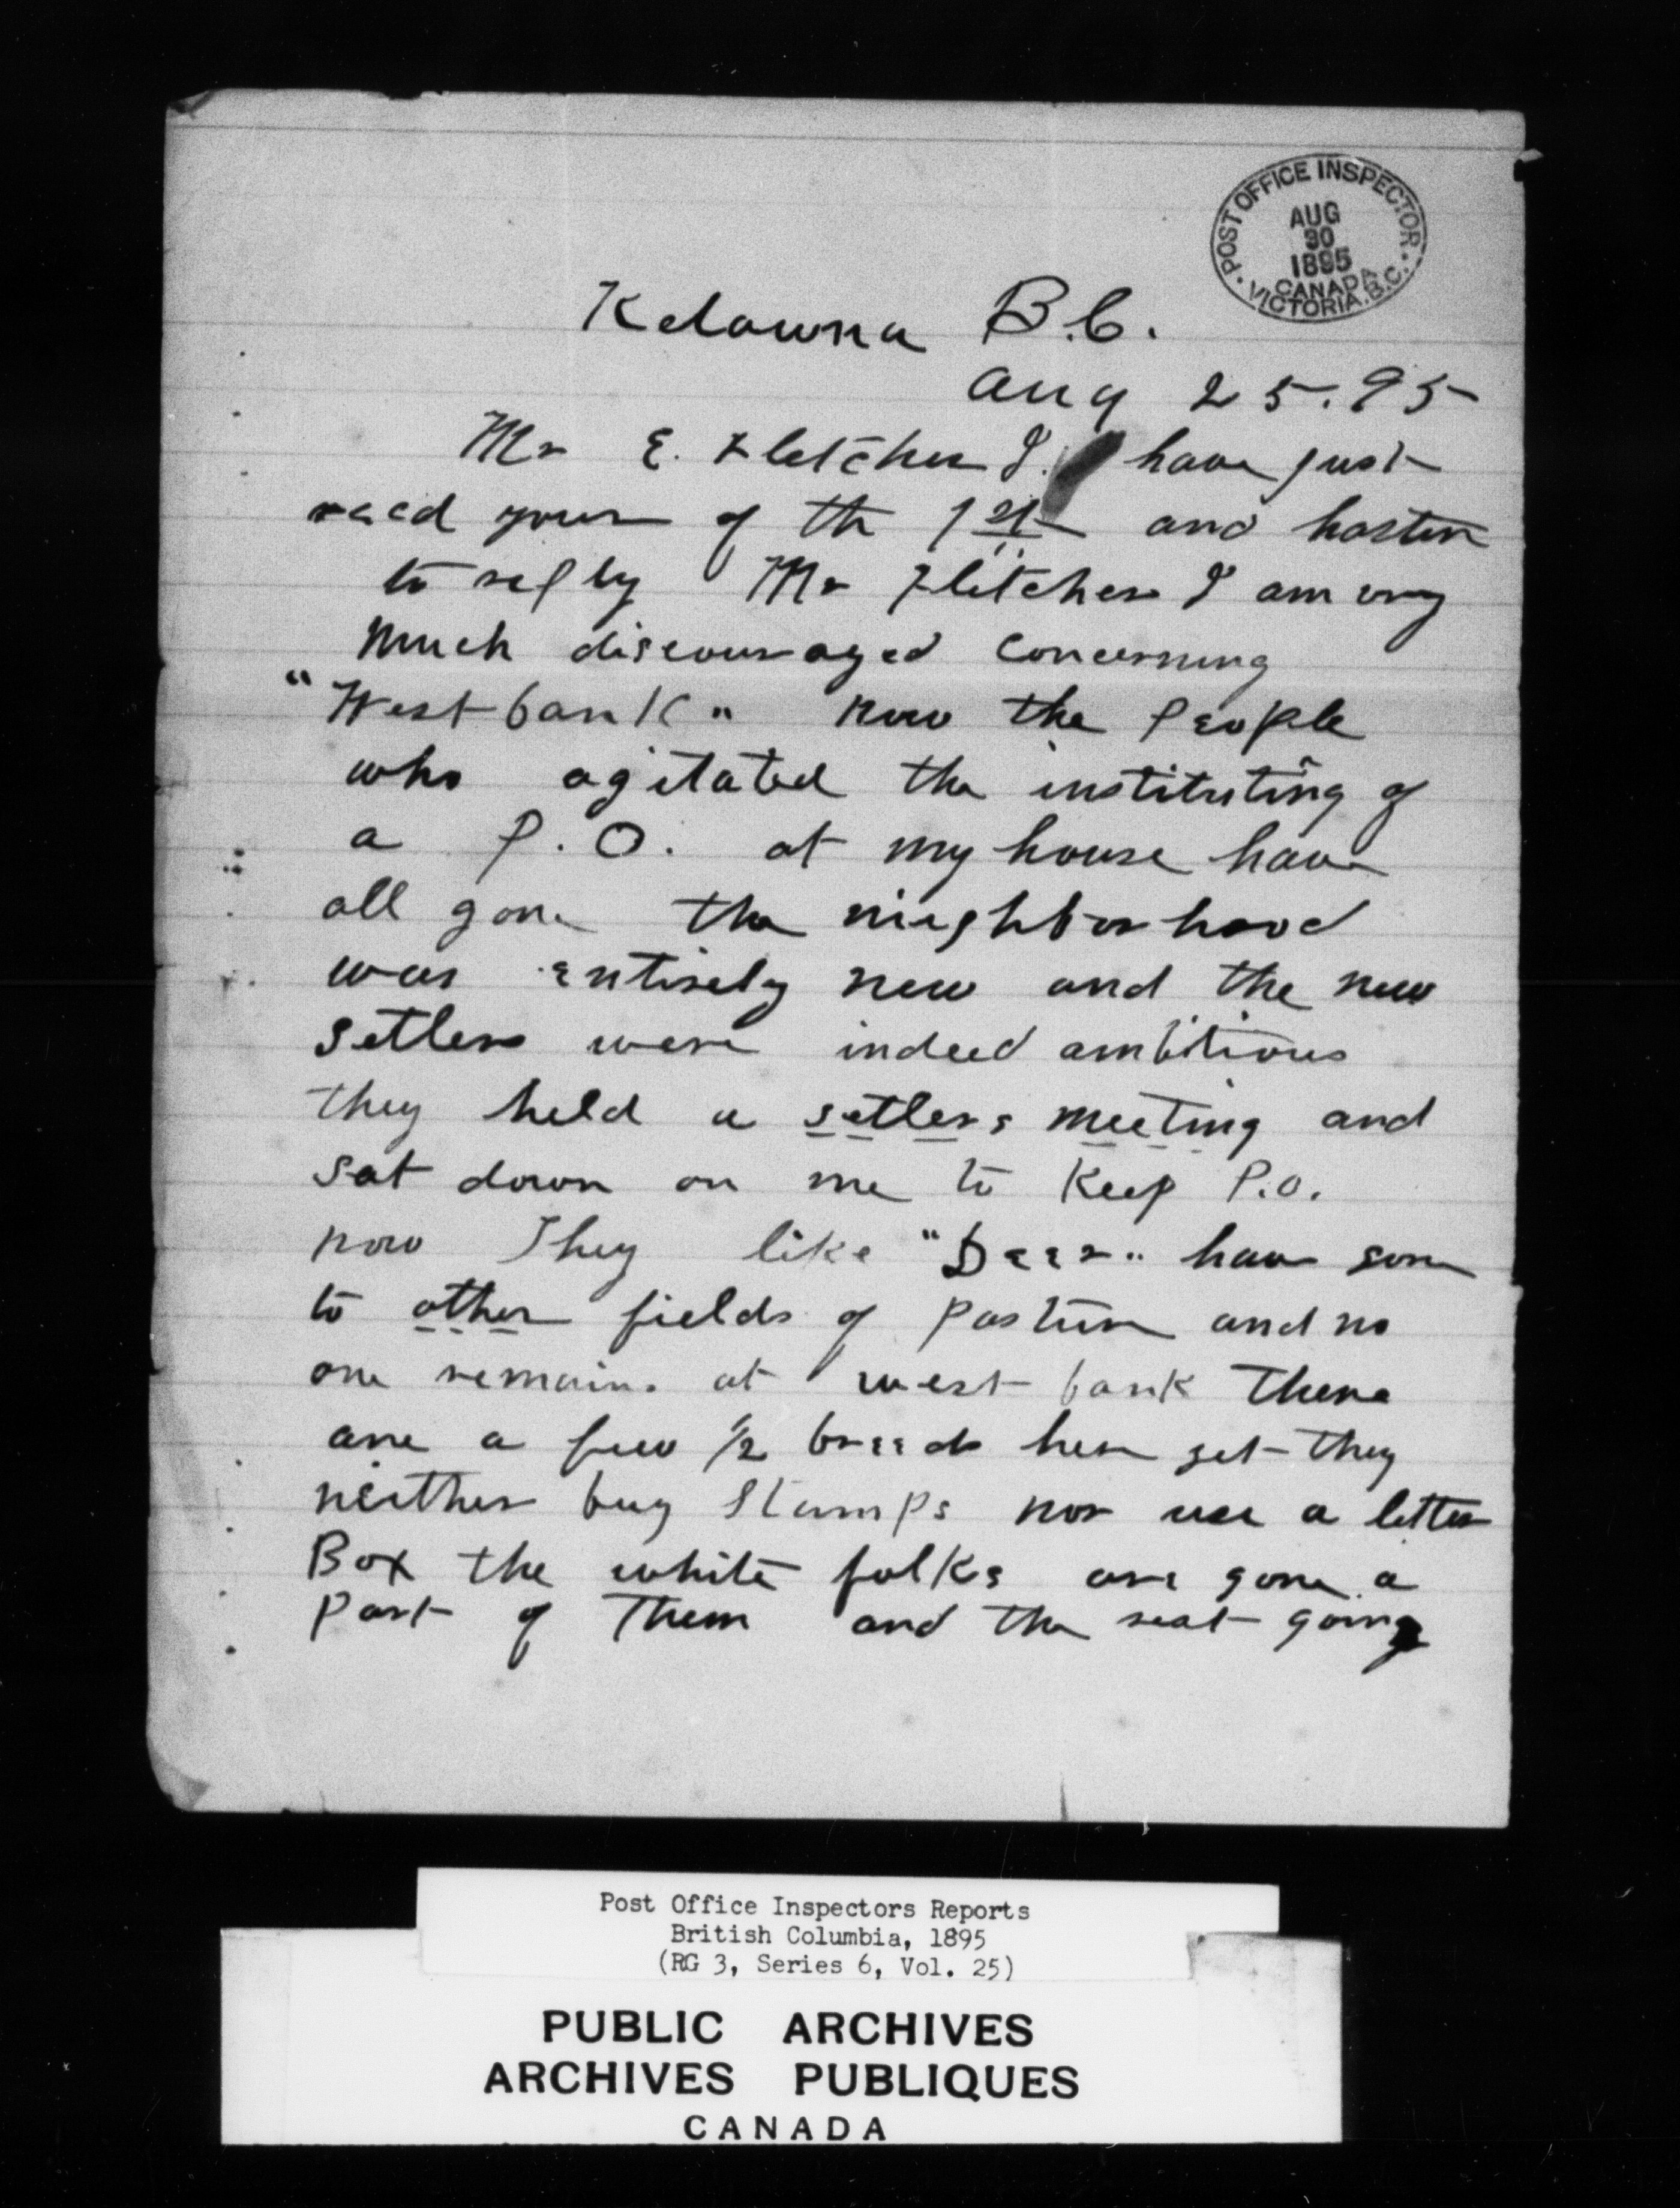 POST OFFICE INSPECTOR
AUG
30
1895
CANADA
VICTORIA, B.C.
Kelowna B.C.
Aug 25. 95
Mr E. Fletcher I have just
recd your of the 1st and hasten
to reply Mr Fletcher I am very
much discouraged concerning
"West bank" now the People
who agitated the instituting of
a P.O. at my house have
all gone the nieghborhood
was entirely new and the new
Setlers were indeed ambitious
they held a setlers meeting and
sat down on me to Keep P.O.
now They like "Deer" have gone
to other fields of Pasture and no
one remains at west bank There
are a few 1/2 breeds here yet they
neither buy Stamps nor use a letter
Box the white folks are gone a
Part of Them and the rest going
Post Office Inspectors Reports
British Columbia, 1895
(RG 3, Series 6, Vol. 25)
PUBLIC ARCHIVES
ARCHIVES PUBLIQUES
CANADA